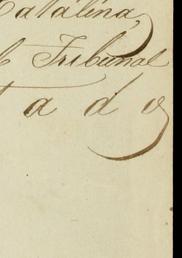 Catalina,
Tribunal
t a d o